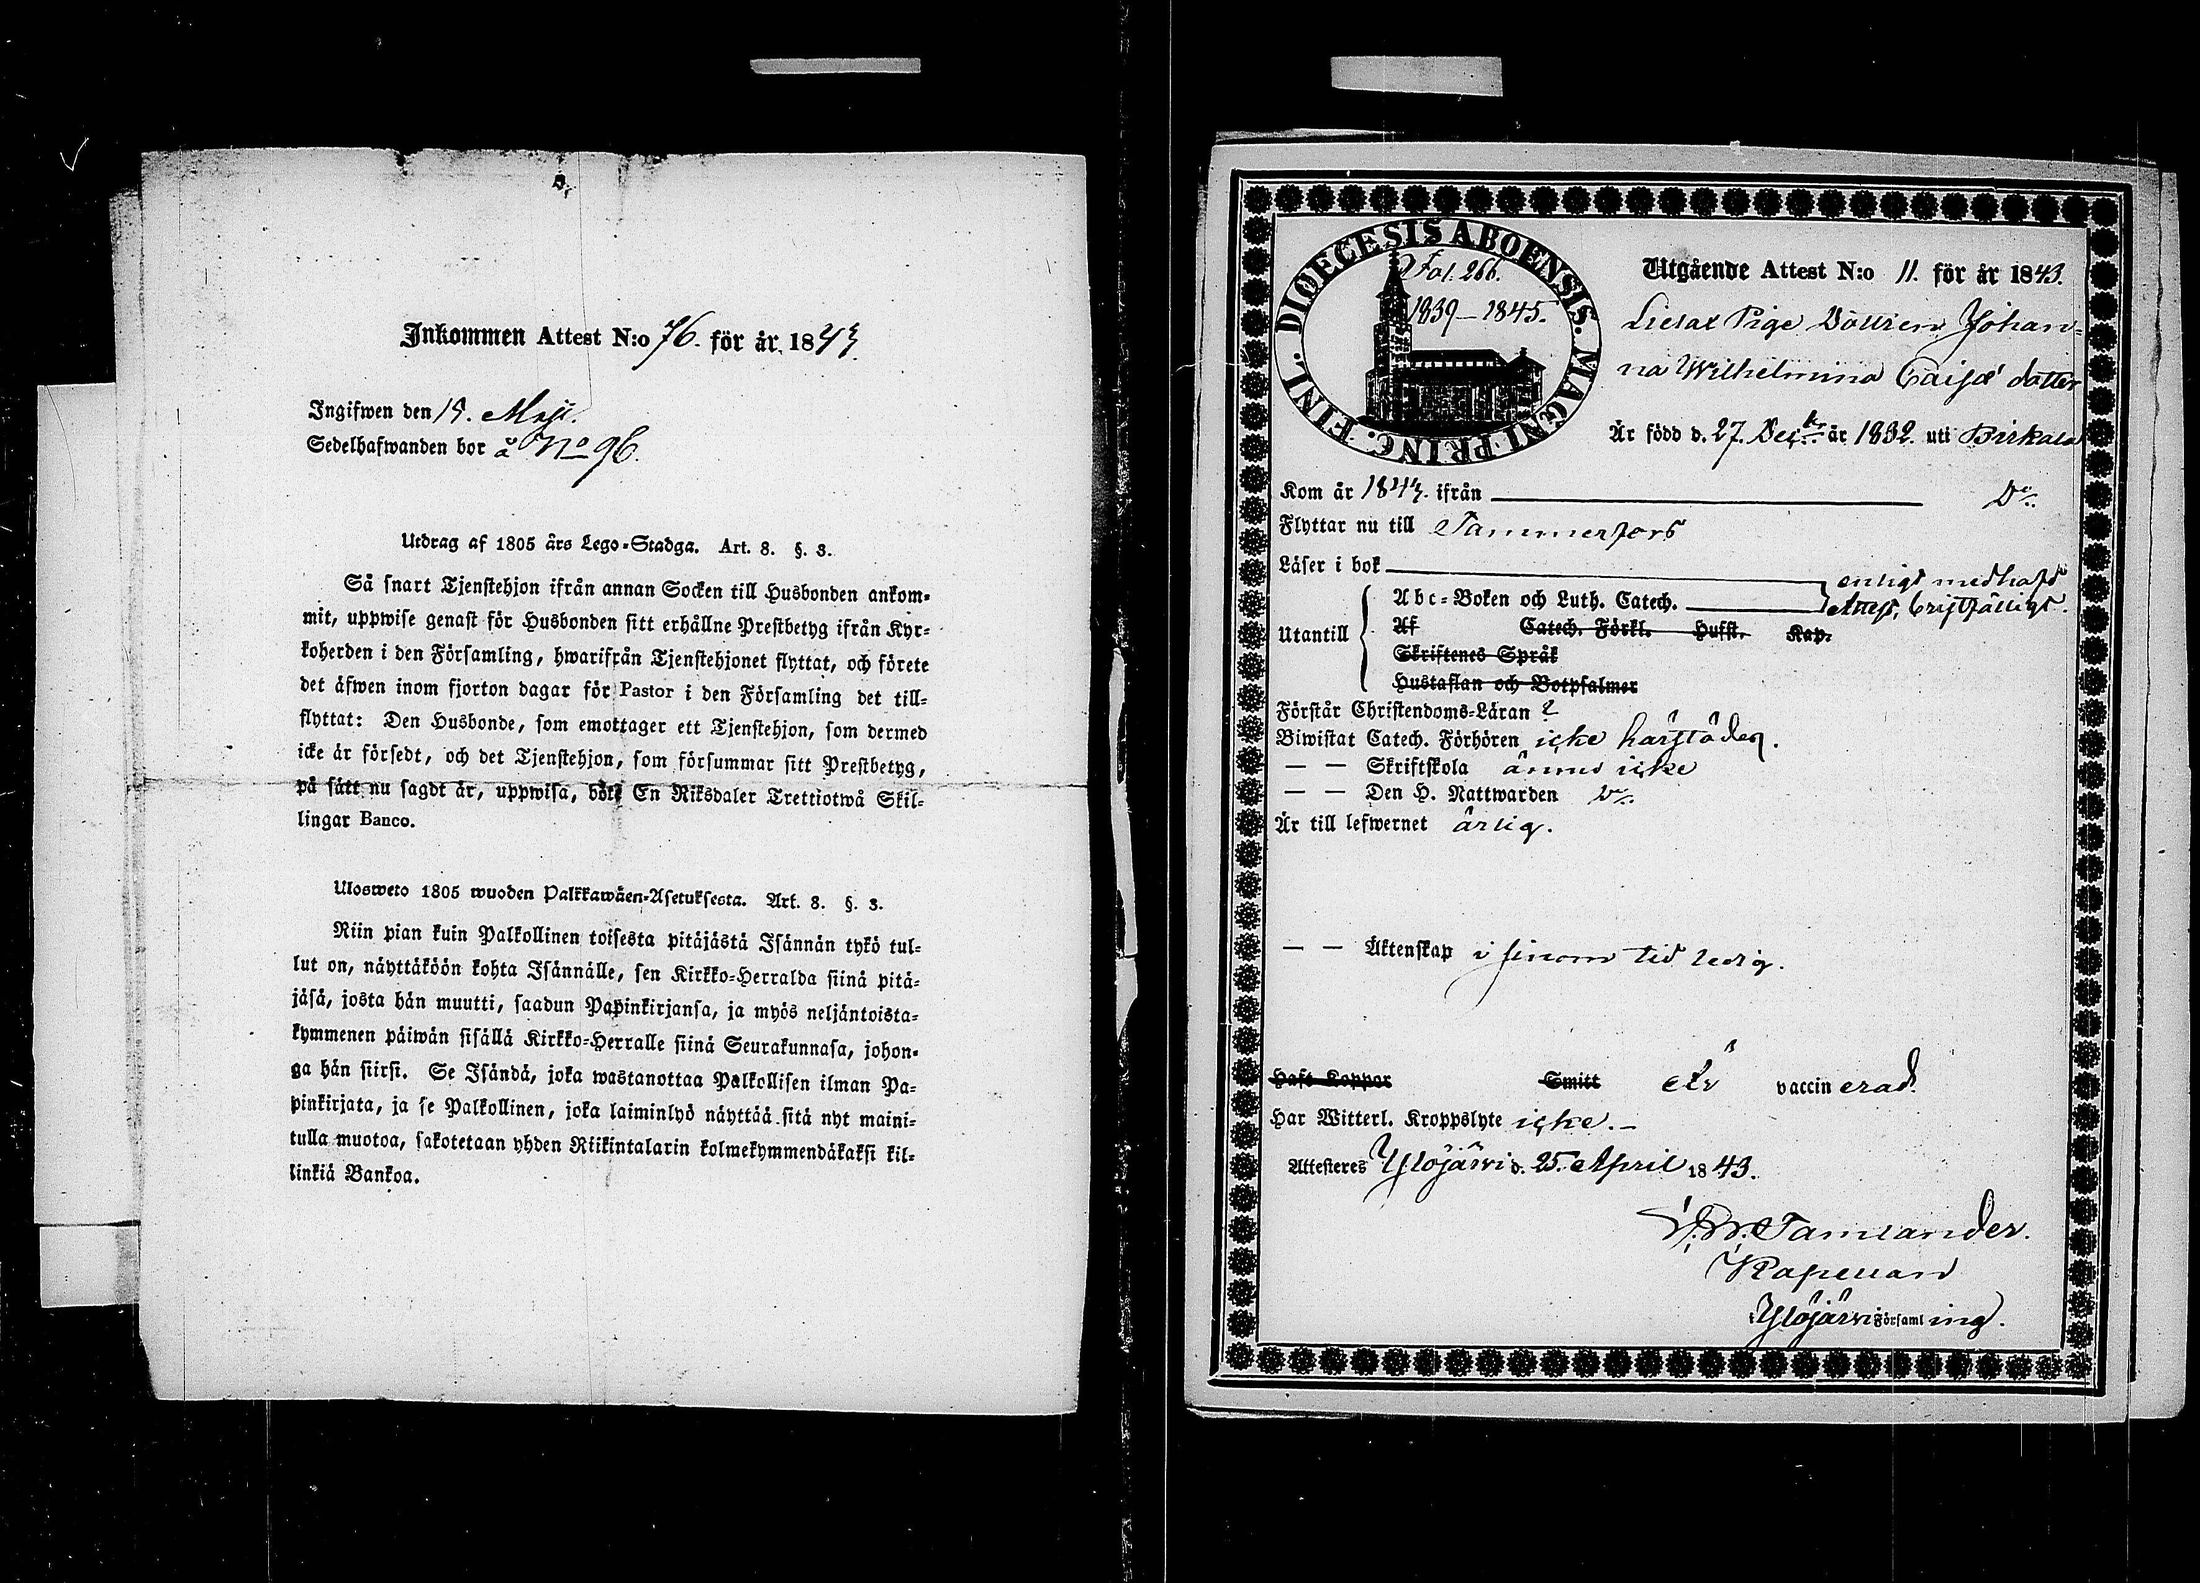 Inkommen Attest N:o 76. för år 1843.
Ingifwen den 15. Maji.
Sedelhafwanden bor å No 96.
Utdrag af 1805 års Lego-Stadga. Art. 8. §. 3.
Så snart Tjenstehjon ifrån annan Socken till Husbonden ankom-
mit, uppwise genast för Husbonden sitt erhållne Prestbetyg ifrån Kyr-
koherden i den Församling, hwarifrån Tjenstehjonet flyttat, och förete
det äfwen inom fjorton dagar för Pastor i den Församling det till-
flyttat: Den Husbonde, som emottager ett Tjenstehjon, som dermed
icke är försedt, och det Tjenstehjon, som försummar sitt Prestbetyg,
på sätt nu sagdt är, uppwisa, böte En Riksdaler Trettiotwå Skil-
lingar Banco.
Ulosweto 1805 wuoden Palkkawäen-Asetuksesta. Art. 8. §. 3.
Niin pian kuin Palkollinen toisesta pitäjästä Isännän tykö tul-
lut on, näyttäköön kohta Isännälle, sen Kirkko-Herralda siinä pitä-
jäsä, josta hän muutti, saadun Papinkirjansa, ja myös neljäntoista-
kymmenen päiwän sisällä Kirkko-Herralle siinä Seurakunnasa, johon-
ga hän siirsi. Se Isändä, joka wastanottaa Palkollisen ilman Pa-
pinkirjata, ja se Palkollinen, joka laiminlyö näyttää sitä nyt maini-
tulla muotoa, sakotetaan yhden Riikintalarin kolmekymmendäkaksi kil-
linkiä Bankoa.
DIOECESIS ABOENSIS. MAGNI PRINC. FINL.
Fol. 266.
1839–1845.
Utgående Attest N:o 11. för år 1843.
Pige Johan-
na Wilhelmina Caisæ dotter
Är född d. 27. Dec:br år 1832. uti Birkala
Kom år 1843. ifrån D:o
Flyttar nu till Tammerfors
Läser i bok enligt medhafd
Abc-Boken och Luth. Catech. Attest, bristfälligt.
Utantill Af Catech. Förkl. Hufst. Kap.
Skriftenes Språk
Hustaflan och Botpsalmer
Förstår Christendoms-Läran ?
Biwistat Catech. Förhören icke härstädes.
— — Skriftskola ännu icke
— — Den H. Nattwarden D:o
Är till lefwernet ärlig.
— — Äktenskap i sinom tid ledig.
Haft Koppor Smitt vaccinerad.
Har Witterl. Kroppslyte icke.–
Attesteres Ylöjärvi d. 25. April 1843.
Tamlander.
Kapellan
i Ylöjärvi Församling.